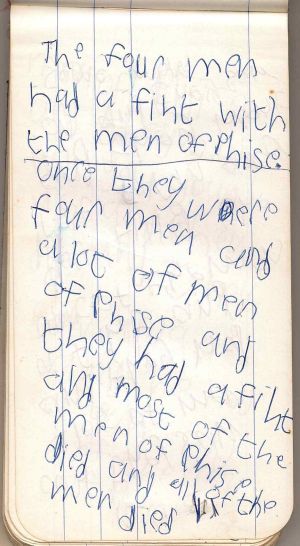 The four men
had a fiht with
the men of phise.
once they
where
four men and
a lot of men
of phise and
they had a fiht
and most of the
men of phise
died and all of the
men died